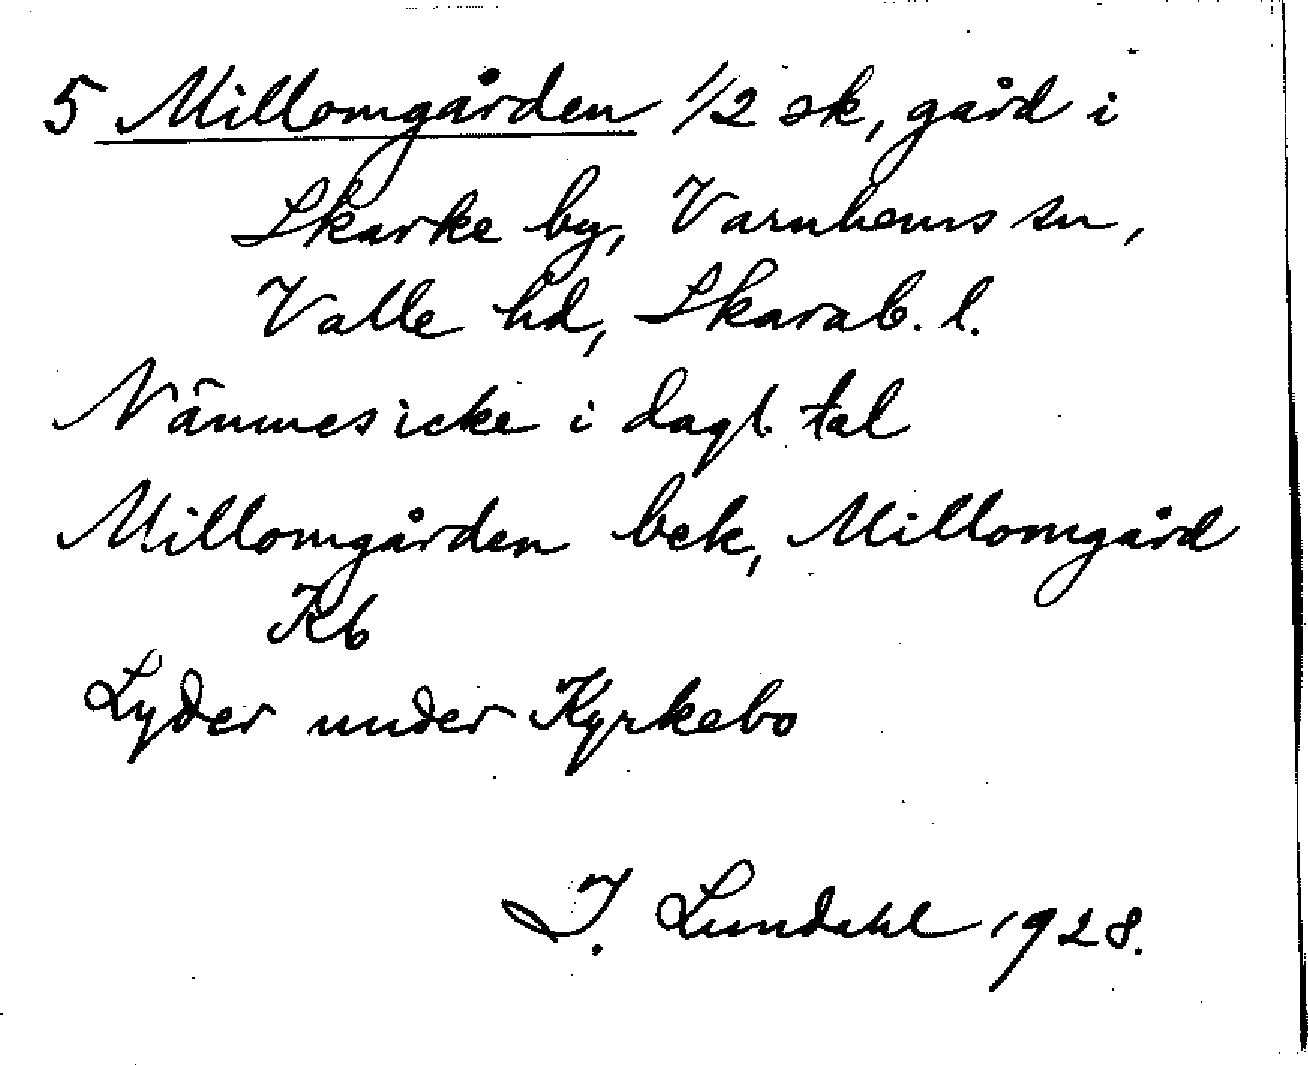 5 Millomgården 1/2 sk, gård i
Skarke by, Varnhems sn,
Valle hd, Skarab. l.
Nämnes icke i dagl. tal
Millomgården bek, Millomgård
Kb
Lyder under Kyrkebo
I. Lundahl 1928.